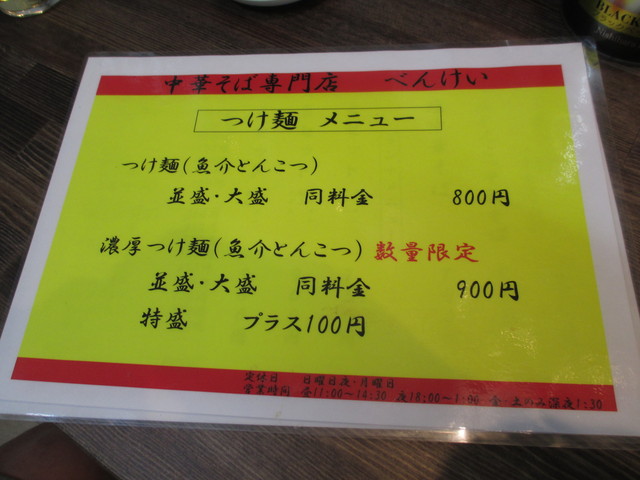 BLACK
中華そば専門店 べんけい
つけ麺 メニュー
つけ麺(魚介とんこつ)
並盛・大盛 同料金 800円
濃厚つけ麺(魚介とんこつ) 数量限定
並盛・大盛 同料金 900円
特盛 プラス100円
定休日 日曜日夜・月曜日
営業時間 昼11:00~14:30 夜18:00~1:00 金・土のみ深夜1:30